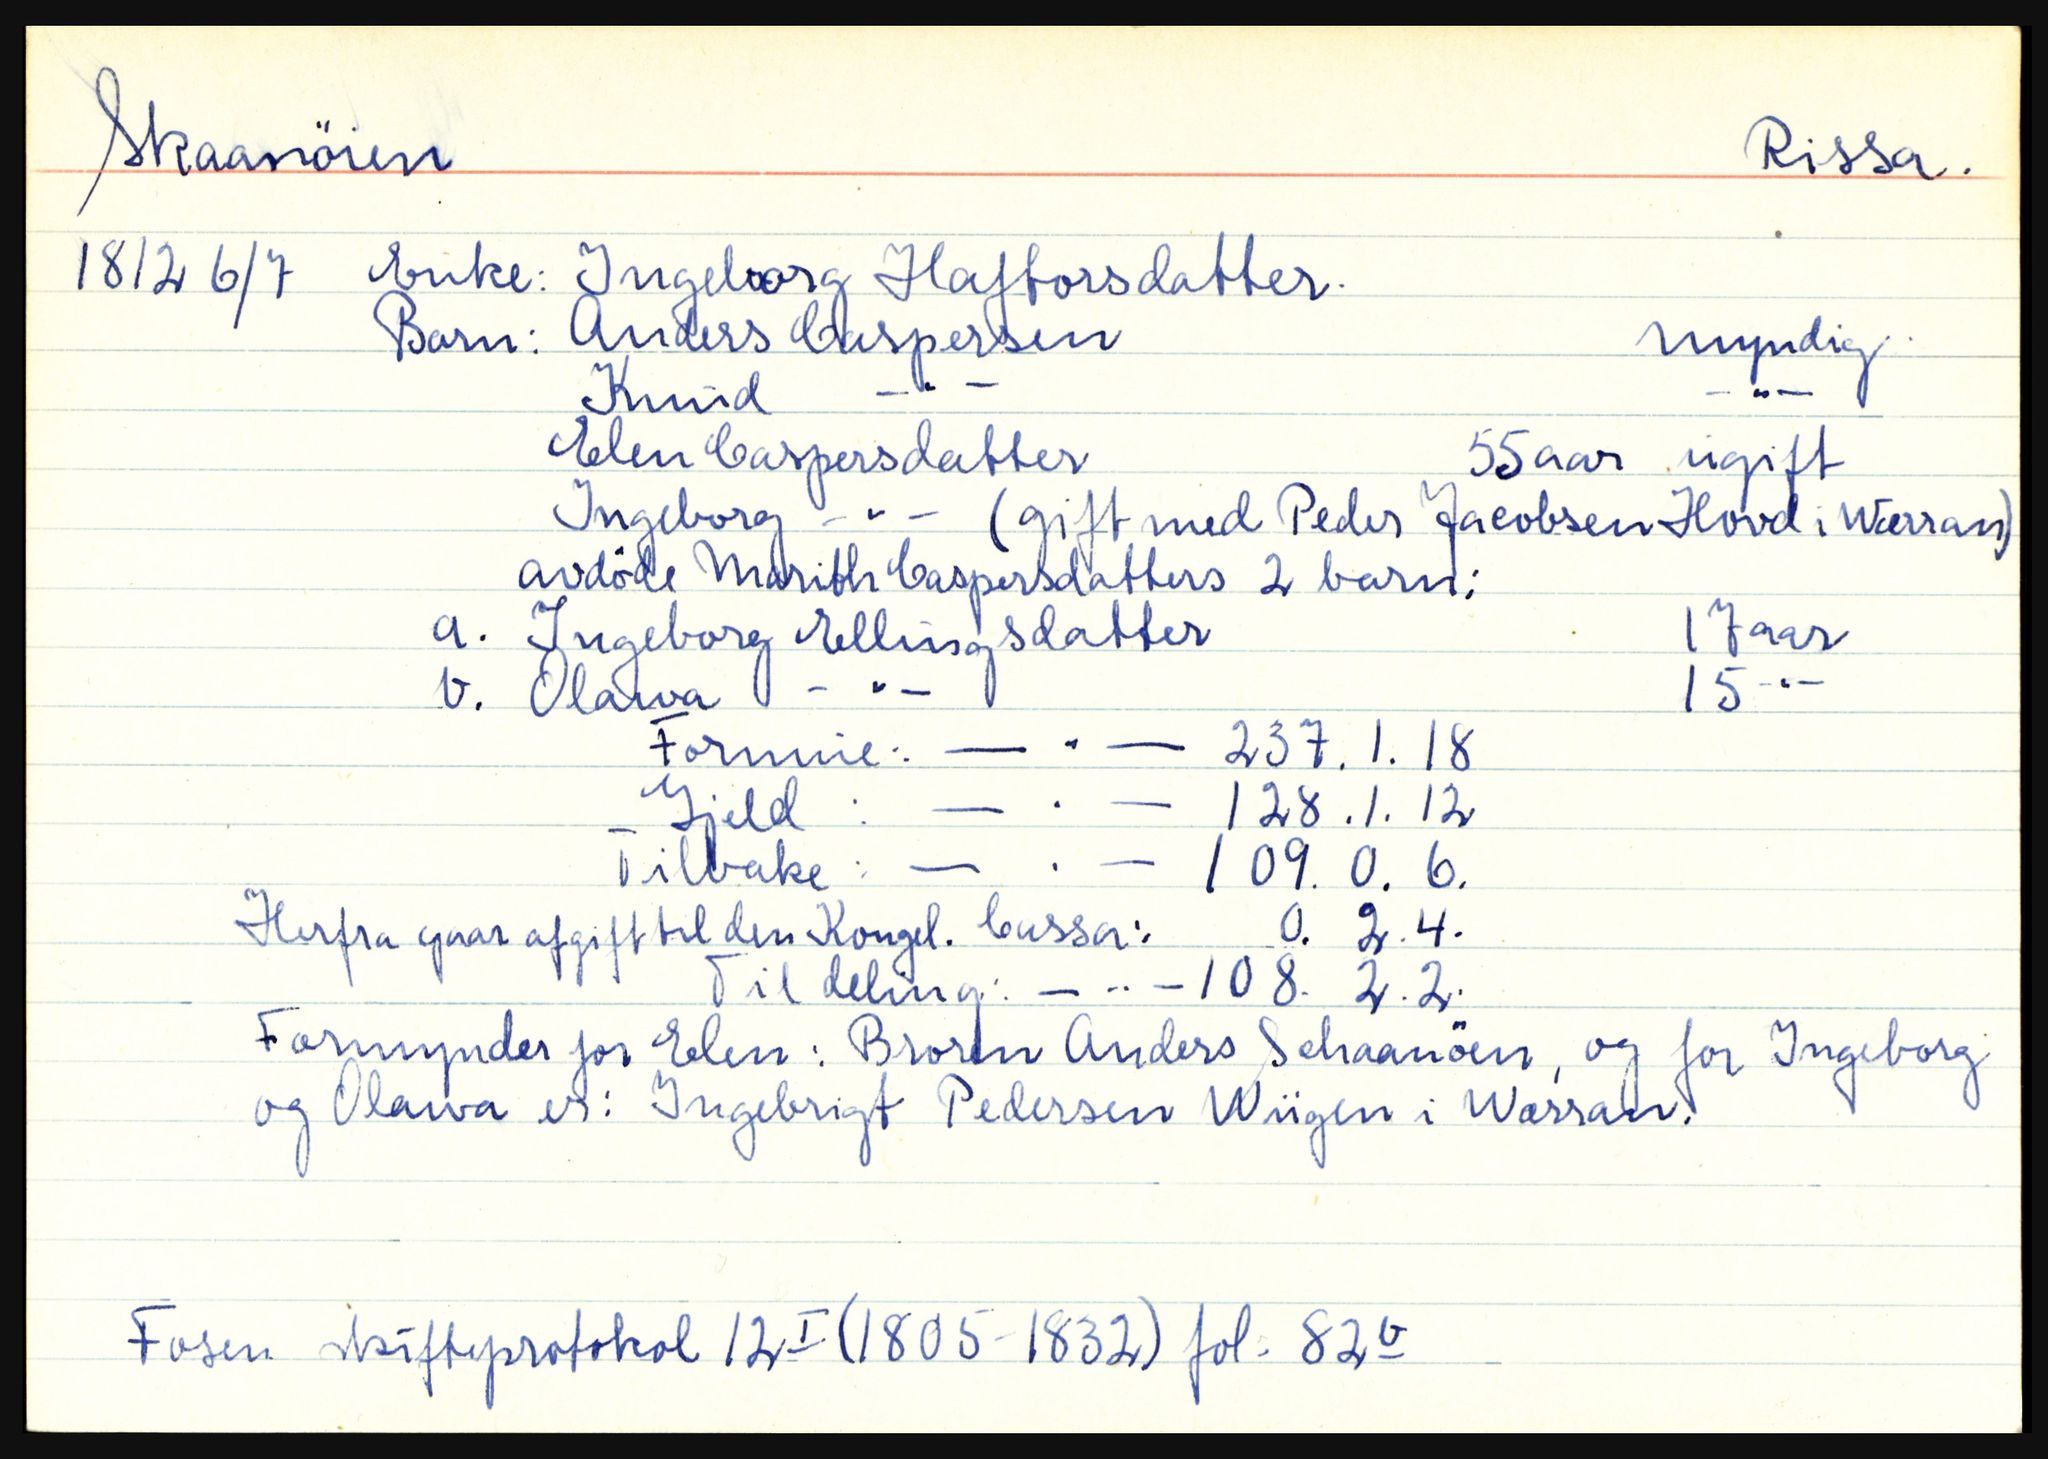 Skaanöien Rissa.
1812 6/7 Enke: Ingeborg Haftorsdatter.
Barn: Anders Caspersen myndig.
Knud -"- -"-
Elen Caspersdatter 55 aar ugift
Ingeborg -"- (gift med Peder Jacobsen Hovd i Wærran)
avdöde Marith Caspersdatters 2 barn:
a. Ingeborg Ellingsdatter 17 aar
b. Olava -"- 15 -"-
Formue: — " — 237. 1. 18
Gjeld : — . — 128. 1. 12
Tilbake : — . — 109. 0. 6.
Herfra gaar afgift til den Kongel. Cassa: 0. 2. 4.
Til deling: — .. — 108. 2. 2.
Formynder for Elen: Broren Anders Schaanöen, og for Ingeborg
og Olava er: Ingebrigt Pedersen Wiigen i Wærran.
Fosen skifteprotokol 12 I (1805-1832) fol. 82 b